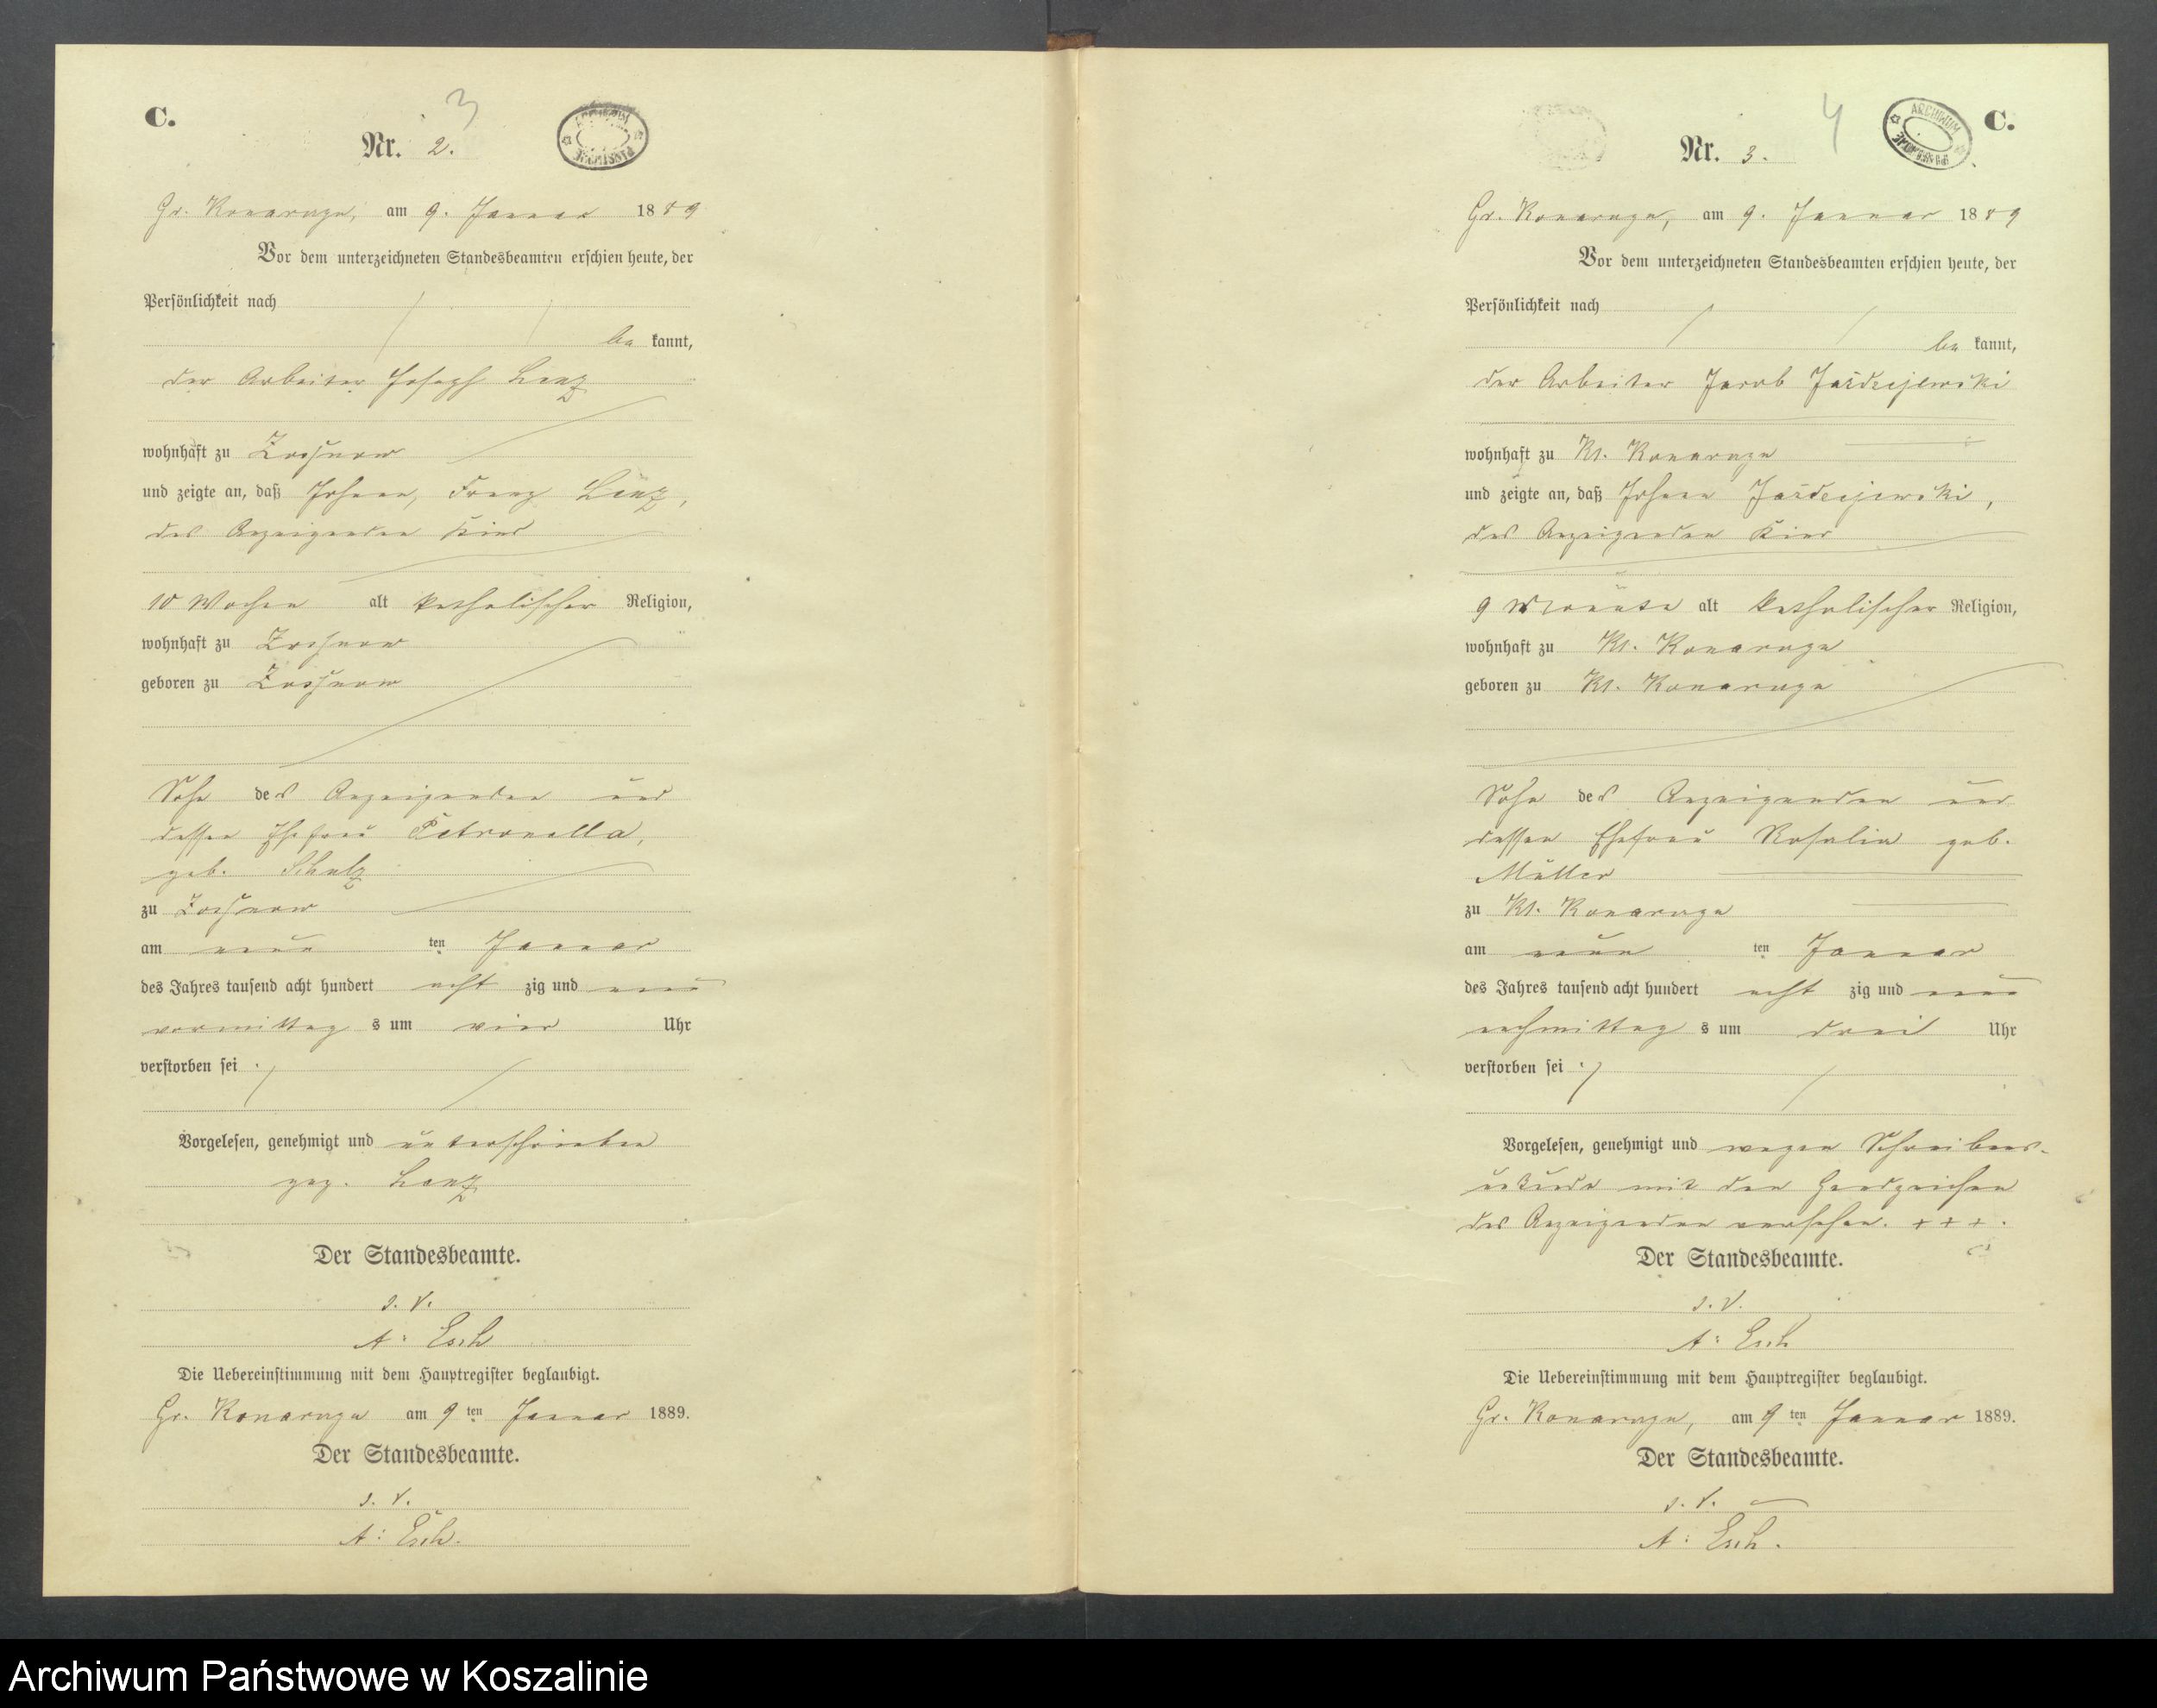 C.
3
Nr. 2.
ARCHIWUM PAŃSTWOWE
Gr. Konarczyn, am 9. Januar 1889
Vor dem unterzeichneten Standesbeamten erschien heute, der
Persönlichkeit nach
be kannt,
der Arbeiter Joseph Lenz
wohnhaft zu
und zeigte an, daß Johann, Franz Lenz,
des Anzeigenden Kind
10 Wochen alt katholischer Religion,
wohnhaft zu
geboren zu
Sohn des Anzeigenden und
dessen Ehefrau Petronella,
geb. Schulz
zu
am neun ten Januar
des Jahres tausend acht hundert acht zig und neun
vormittag s um vier Uhr
verstorben sei
Vorgelesen, genehmigt und unterschrieben
gez. Lenz
Der Standesbeamte.
i. V.
A: Esch
Die Uebereinstimmung mit dem Hauptregister beglaubigt.
Gr. Konarczyn am 9 ten Januar 1889.
Der Standesbeamte.
i. V.
A: Esch.
C.
4
Nr. 3.
ARCHIWUM PAŃSTWOWE
Gr. Konarczyn, am 9. Januar 1889
Vor dem unterzeichneten Standesbeamten erschien heute, der
Persönlichkeit nach
be kannt,
der Arbeiter Jacob Jazdzejewski
wohnhaft zu Kl. Konarczyn
und zeigte an, daß Johann Jazdzejewski,
des Anzeigenden Kind
9 Monate alt katholischer Religion,
wohnhaft zu Kl. Konarczyn
geboren zu Kl. Konarczyn
Sohn des Anzeigenden und
dessen Ehefrau Rosalia geb.
Müller
zu Kl. Konarczyn
am neun ten Januar
des Jahres tausend acht hundert acht zig und neun
nachmittag s um drei Uhr
verstorben sei
Vorgelesen, genehmigt und wegen Schreibens-
unkunde mit den Handzeichen
des Anzeigenden versehen. + + + .
Der Standesbeamte.
i. V.
A: Esch
Die Uebereinstimmung mit dem Hauptregister beglaubigt.
Gr. Konarczyn, am 9 ten Januar 1889.
Der Standesbeamte.
i. V.
A: Esch.
Archiwum Państwowe w Koszalinie